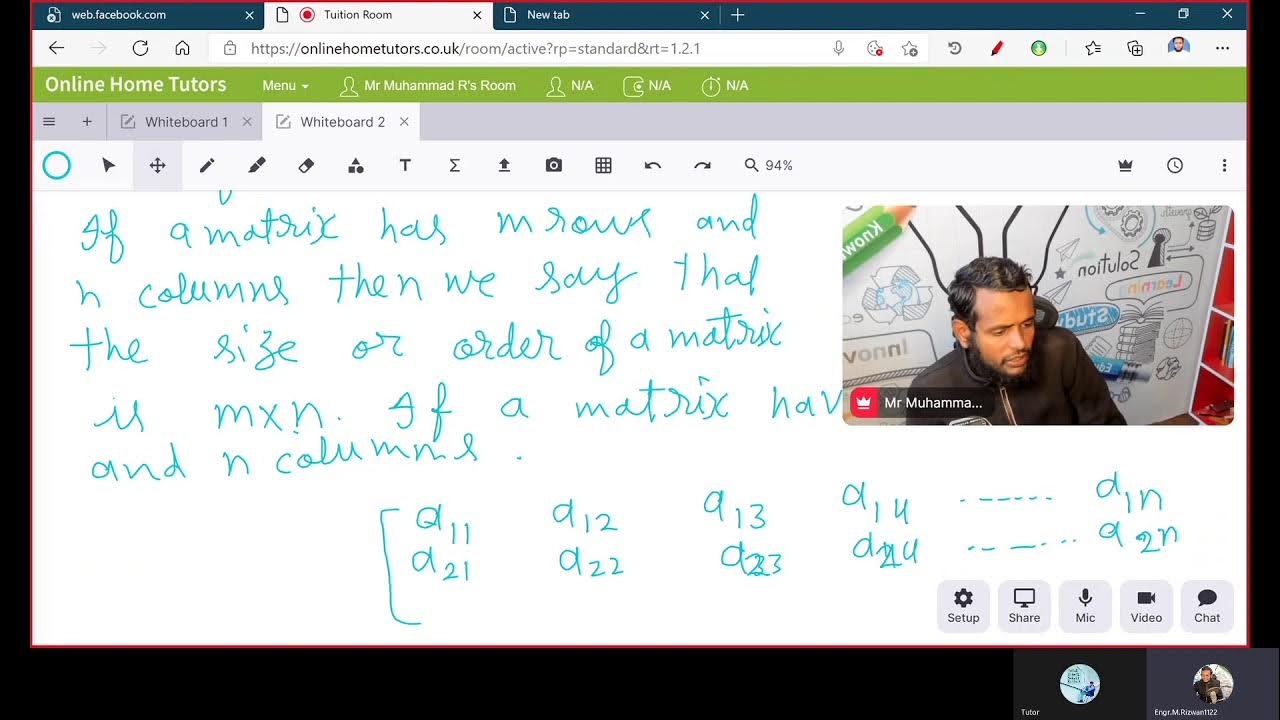 web.facebook.com
Tuition Room
New tab
https://onlinehometutors.co.uk/room/active?rp=standard&rt=1.2.1
Online Home Tutors
Menu
Mr Muhammad R's Room
N/A
N/A
N/A
Whiteboard 1
Whiteboard 2
T
Σ
94%
If a matrix has m rows and
n columns then we say that
the size or order of a matrix
is m×n. If a matrix hav
and n columns.
a11 a12 a13 a14 ------ a1n
a21 a22 a23 a24 ------ a2n
Know
Solution
Learning
Study
Innov
Mr Muhamma...
Setup
Share
Mic
Video
Chat
Tutor
Engr.M.Rizwan1122